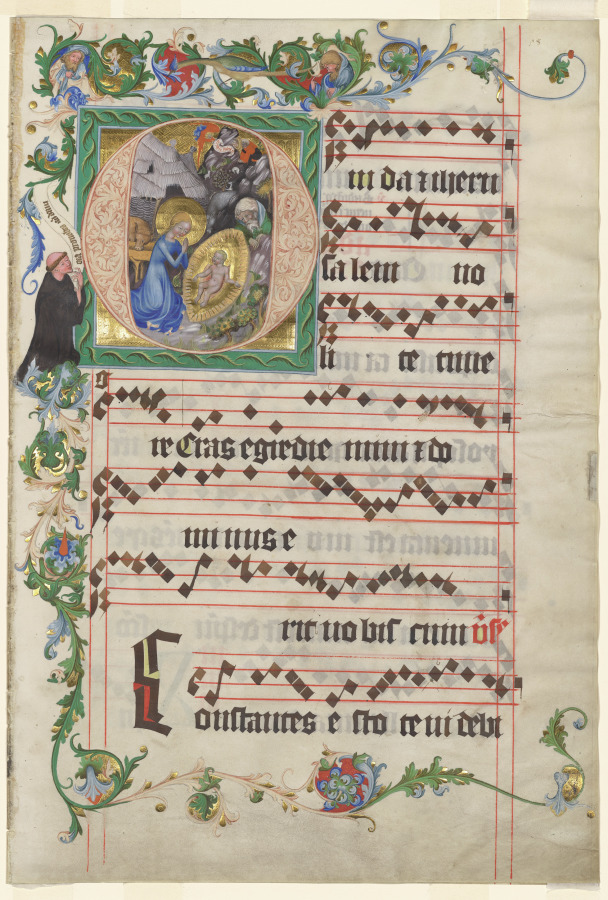 O
iu da ⁊ iheru
sa lem no
li te time
re Cras egredie mini ⁊ do
mi nus e
rit uo bis cum v̄s
Constantes e sto te ui debi